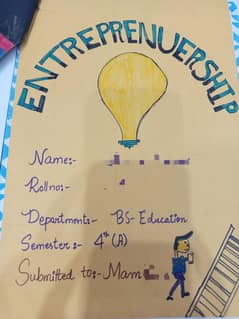 ENTREPRENUERSHIP
Name:-
Rollno:-
Department:- BS- Education
Semester:- 4th (A)
Submitted to:- Mam